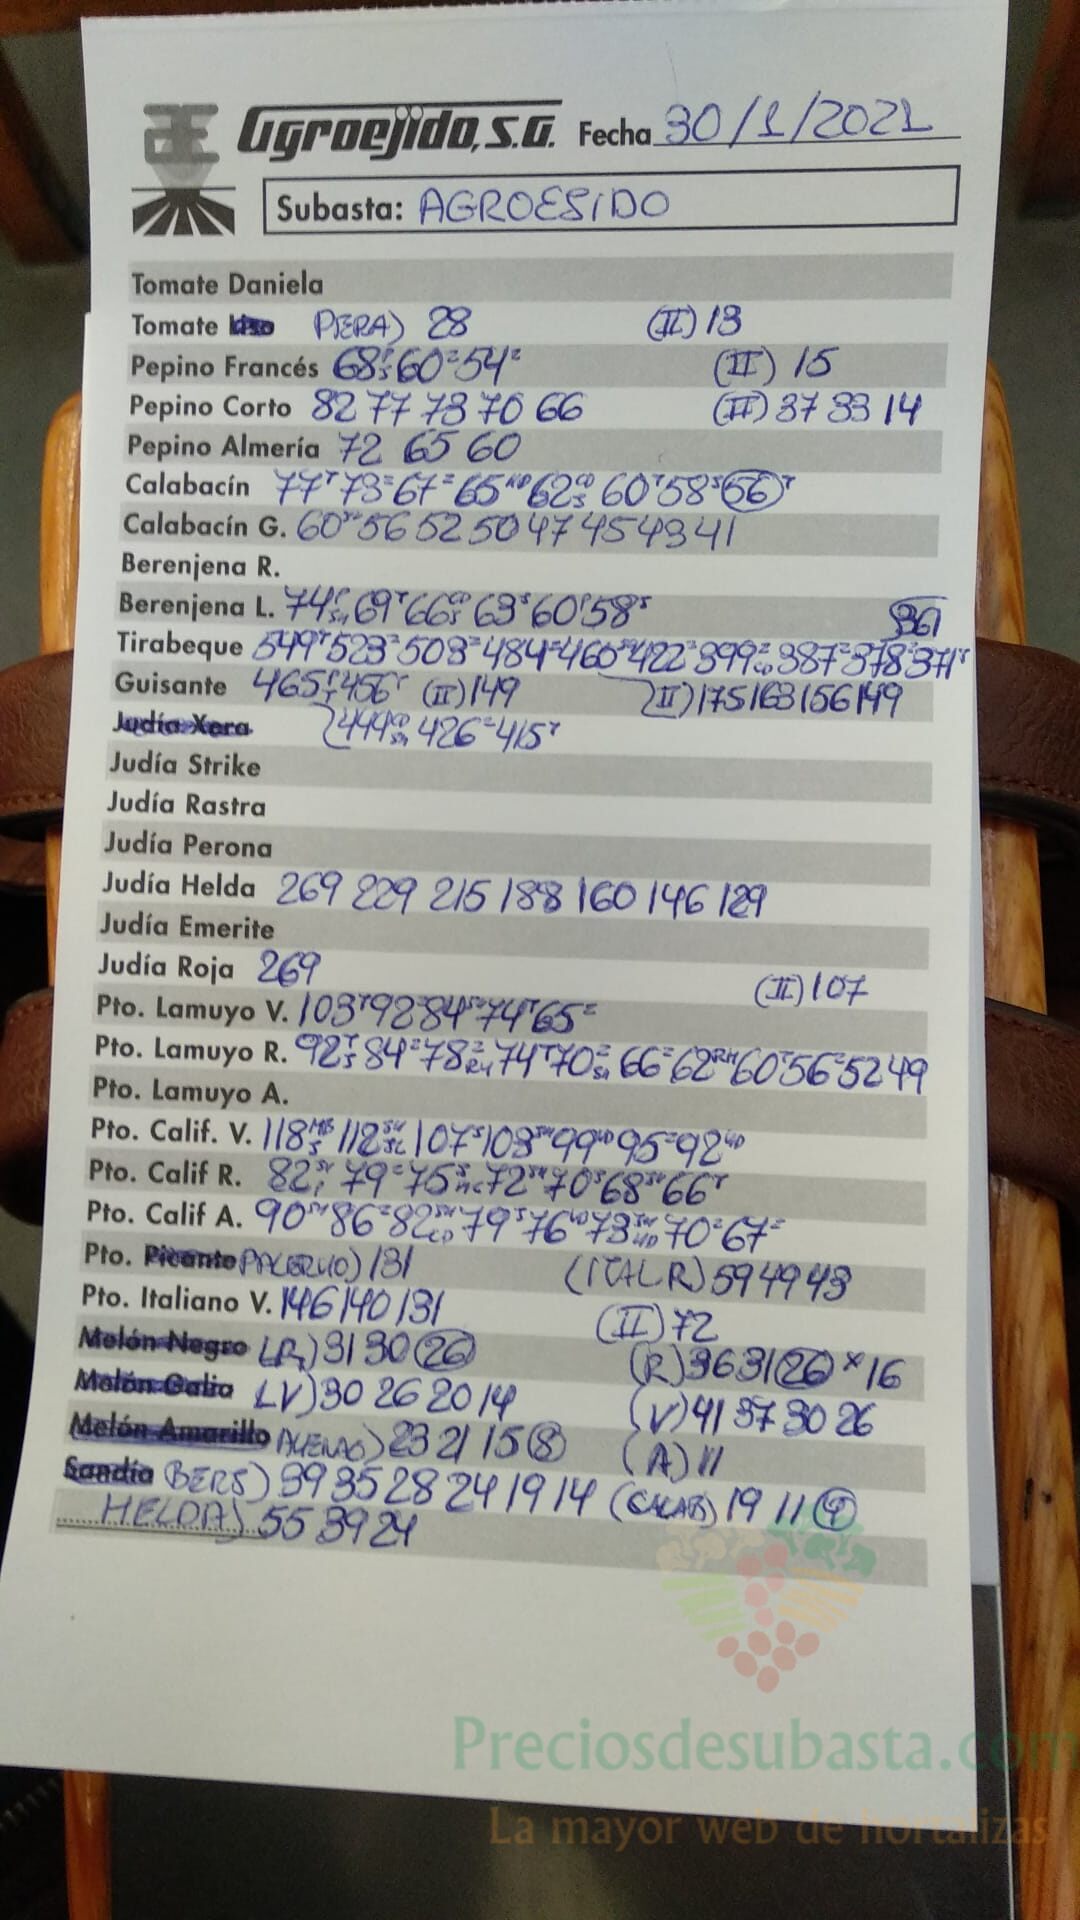 Agroejido, S.G. Fecha 30/1/2021
Subasta: AGROEJIDO
Tomate Daniela
Tomate PERA) 28 (II) 13
Pepino Francés 68 60 54 (II) 15
Pepino Corto 82 77 73 70 66 (II) 37 33 14
Pepino Almería 72 65 60
Calabacín 77 73 67 65 62 60 58 56
Calabacín G. 60 56 52 50 47 45 43 41
Berenjena R.
Berenjena L. 74 69 66 63 60 58
Tirabeque 549 523 503 484 460 422 399 387 378 371 361
Guisante 465 456 (II) 149 (II) 175 163 156 149
Judía Xera 444 426 415
Judía Strike
Judía Rastra
Judía Perona
Judía Helda 269 229 215 188 160 146 129
Judía Emerite
Judía Roja 269 (II) 107
Pto. Lamuyo V. 103 92 84 74 65
Pto. Lamuyo R. 92 84 78 74 70 66 62 60 56 52 49
Pto. Lamuyo A.
Pto. Calif. V. 118 112 107 103 99 95 92
Pto. Calif R. 82 79 75 72 70 68 66
Pto. Calif A. 90 86 82 79 76 73 70 67
Pto. Picante PALERMO) 131 (ITAL R) 59 49 43
Pto. Italiano V. 146 140 131 (II) 72
Melón Negro LR) 31 30 26 (R) 36 31 26 x 16
Melón Galia LV) 30 26 20 14 (V) 41 37 30 26
Melón Amarillo 23 21 15 8 (A) 11
Sandía BERS) 39 35 28 24 19 14 (CALAB) 19 11 9
HELDA) 55 39 24
Preciosdesubasta.com
La mayor web de hortalizas